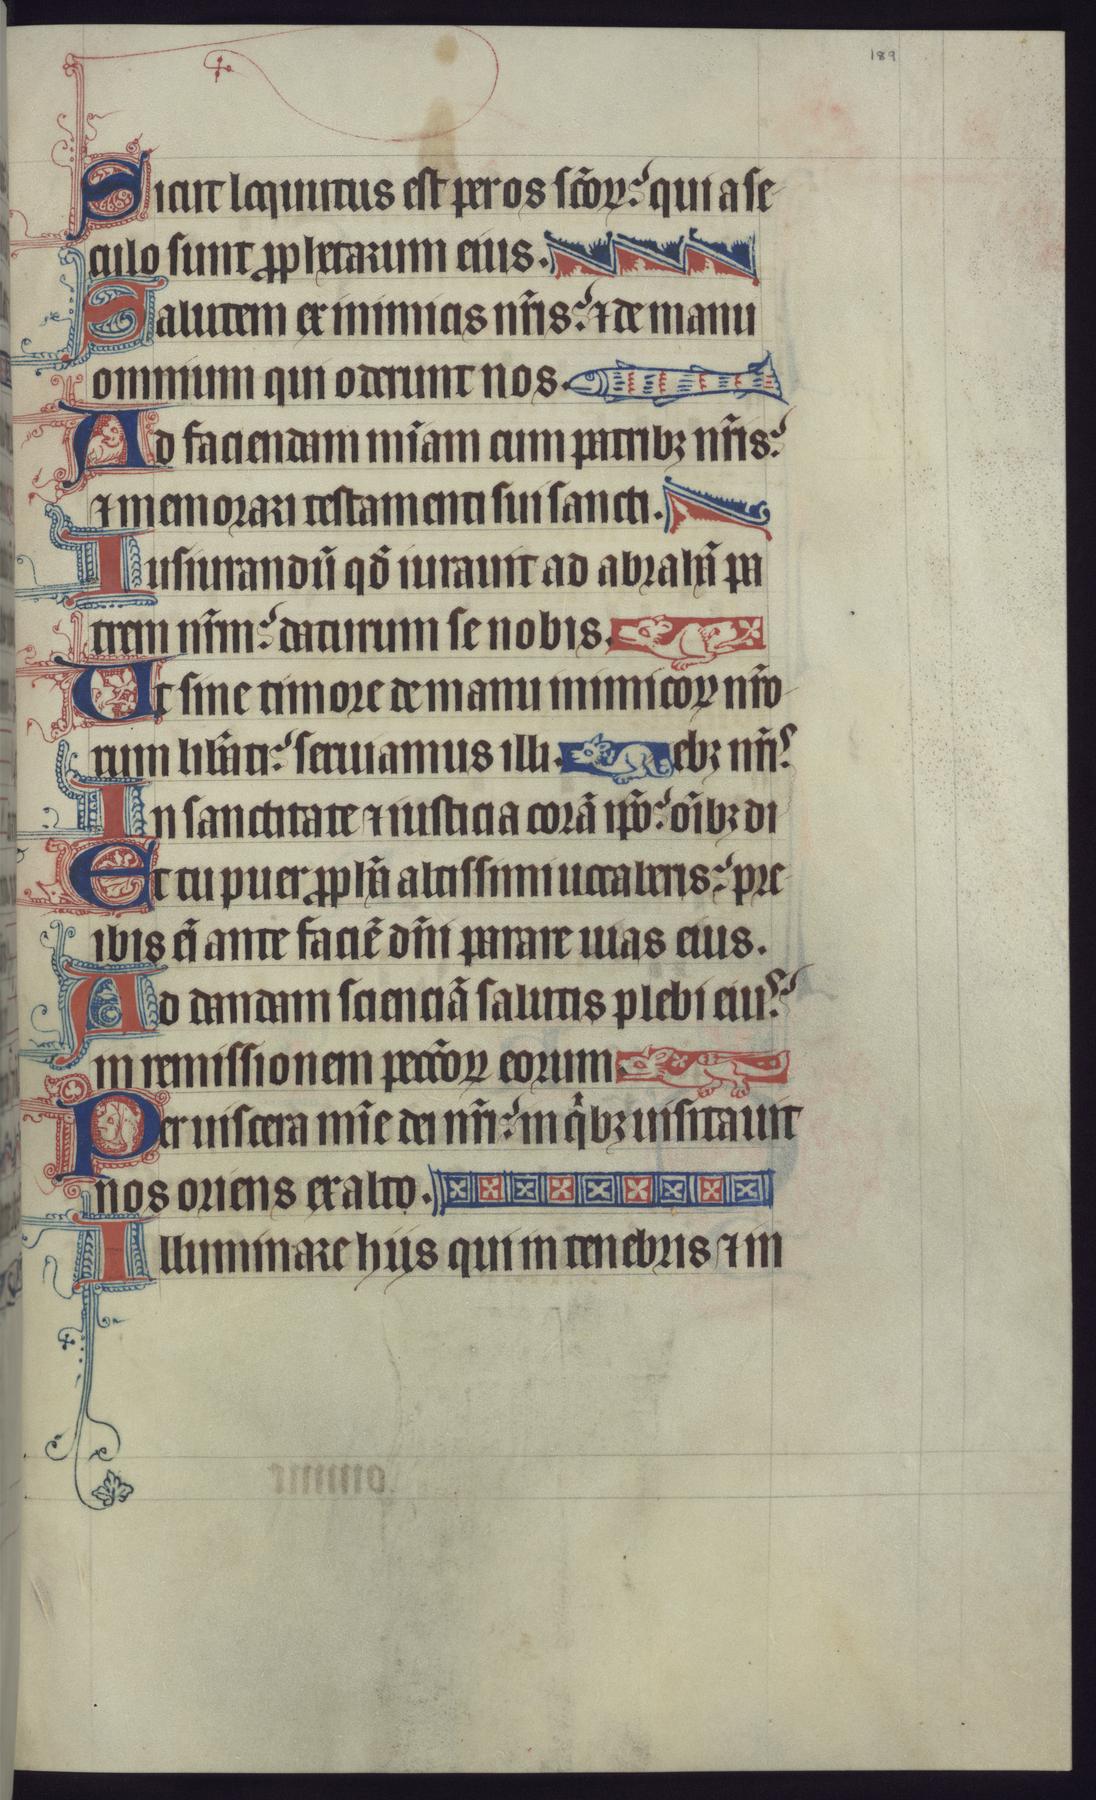 189
Sicut locutus est per os sc̄oꝝ: qui a se
culo sunt ꝓphetarum eius.
Salutem ex inimicis nr̄is: ⁊ de manu
omnium qui oderunt nos.
Ad faciendam mīam cum patribꝫ nr̄is:
⁊ memorari testamenti sui sancti.
Iusiurandū qđ iurauit ad abrahā pa
trem nr̄m: daturum se nobis.
Ut sine timore de manu inimicoꝝ nr̄o
rum lib̄ati: seruiamus illi. ebꝫ nr̄i:
In sanctitate ⁊ iusticia corā ip̄o: oībꝫ di
Et tu puer ꝓph̄a altissimi uocaberis: pre
ibis eī ante faciē dn̄i parare uias eius.
Ad dandam scienciā salutis plebi eius:
in remissionem pecc̄oꝝ eorum.
Per uiscera mīe dei nr̄i: in qͥbꝫ uisitauit
nos oriens exalto.
Illuminare hijs qui in tenebris ⁊ in